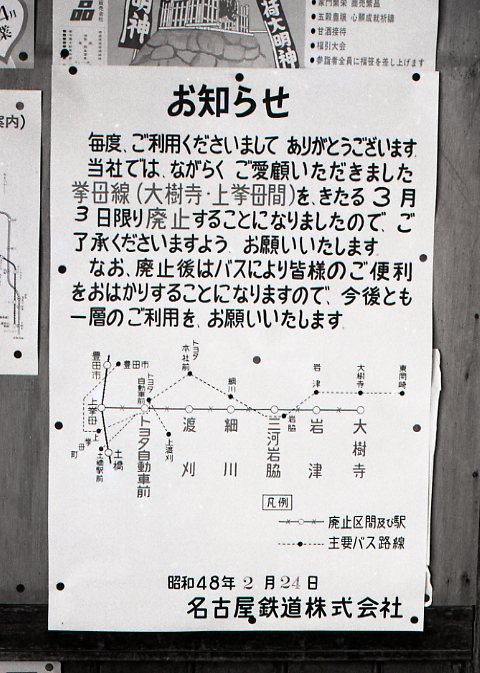 品
明神
荷大明神
家門繁栄 商売繁昌
五穀豊穣 心願成就祈禱
甘酒接待
福引大会
参詣者全員に福笹を差し上げます
案内）
お知らせ
毎度、ご利用くださいまして ありがとうございます
当社では、ながらく ご愛顧いただきました
挙母線（大樹寺・上挙母間）を、きたる 3 月
3 日限り廃止することになりましたので、ご
了承くださいますよう、お願いいたします。
なお、廃止後はバスにより皆様のご便利
をおはかりすることになりますので、今後とも
一層のご利用を、お願いいたします。
豊田市
豊田市
トヨタ本社前
トヨタ自動車前
細川
岩津
大樹寺
東岡崎
上挙母
トヨタ自動車前
渡刈
細川
三河岩脇
岩津
大樹寺
岩脇
上渡刈
上挙母町
土橋駅前
土橋
凡例
廃止区間及び駅
主要バス路線
昭和48年 2 月 24 日
名古屋鉄道株式会社